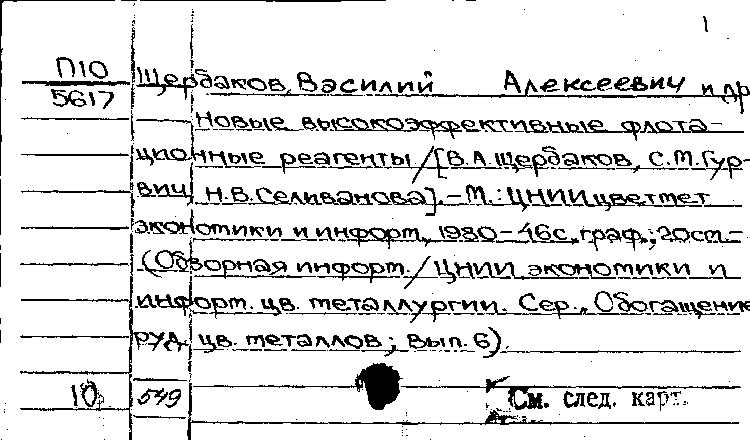 1
П10
5617
Щербаков, Василий Алексеевич и др
Новые высокоэффективные флота-
ционные реагенты / [В.А. Щербаков, С.М. Гур-
вич, Н.В. Селиванова]. – М.: ЦНИИцветмет
экономики и информ., 1980 – 46с., граф.; 20см. –
(Обзорная информ. / ЦНИИ экономики и
информ. цв. металлургии. Сер., Обогащение
руд цв. металлов; вып. 6).
10 549 См. след. карт.